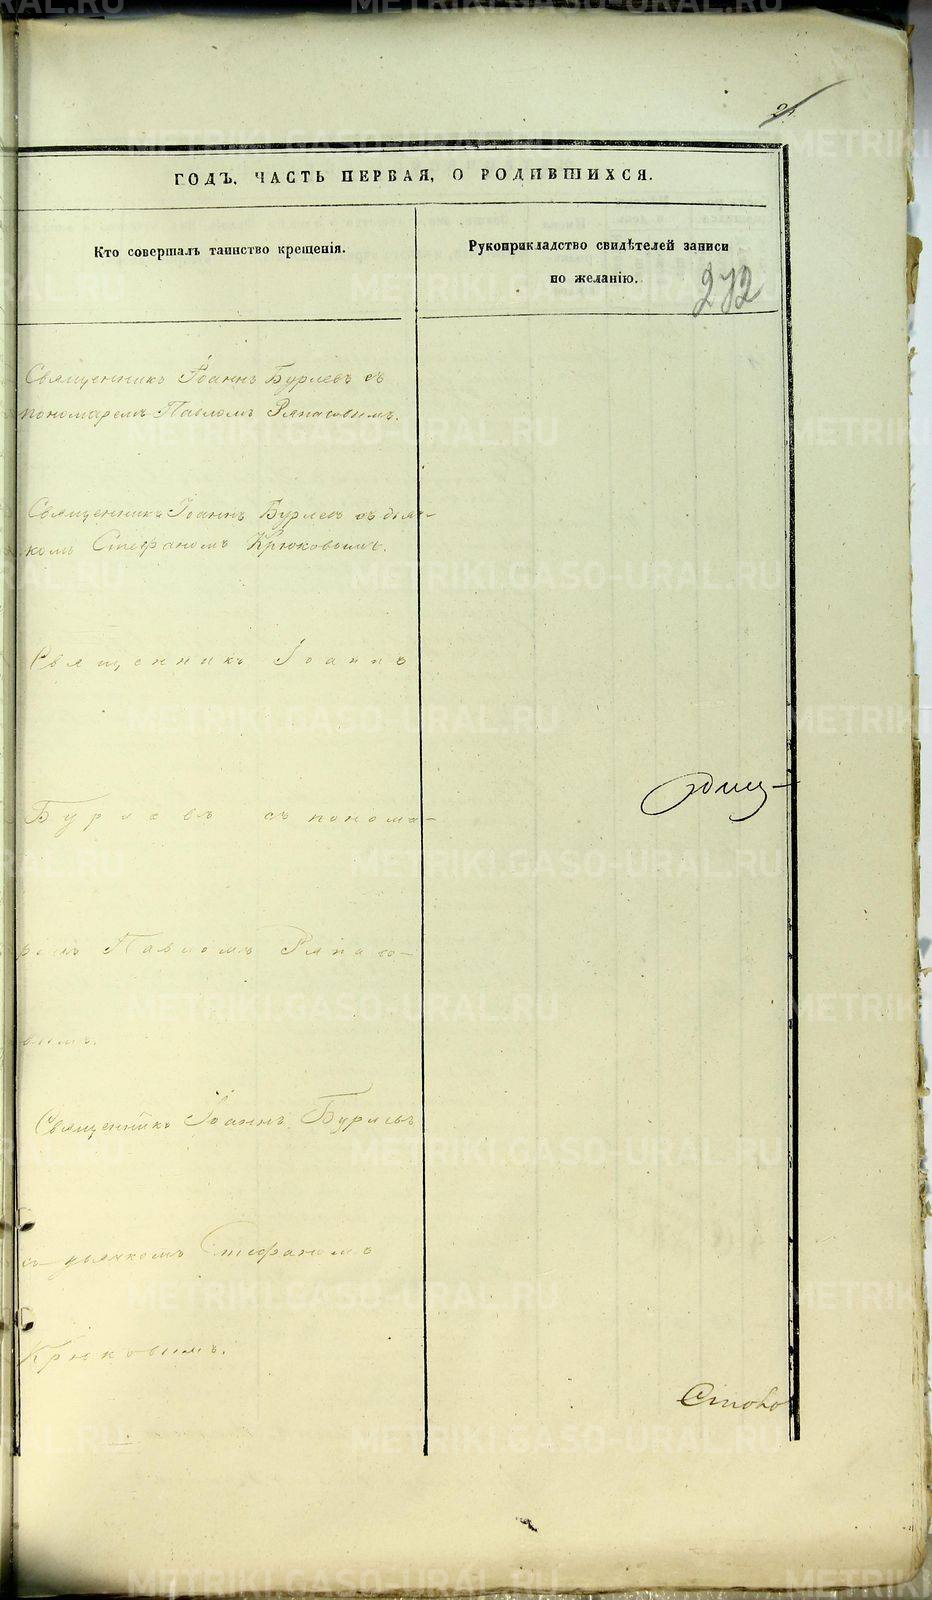 ГОДЪ, ЧАСТЬ ПЕРВАЯ, О РОДИВШИХСЯ.
Кто совершалъ таинство крещенія.
Рукоприкладство свидѣтелей записи
по желанію.
272
Священникъ Іоаннъ Бурлевъ съ
пономаремъ Павломъ Ряпасовымъ.
Священникъ Іоаннъ Бурлевъ съ дьяч-
комъ Стефаномъ Крюковымъ.
Священникъ Іоаннъ
Бурлевъ съ понома-
ремъ Павломъ Ряпасо-
вымъ.
Священникъ Іоаннъ Бурлевъ
съ дьячкомъ Стефаномъ
Крюковымъ.
METRIKI.GASO-URAL.RU